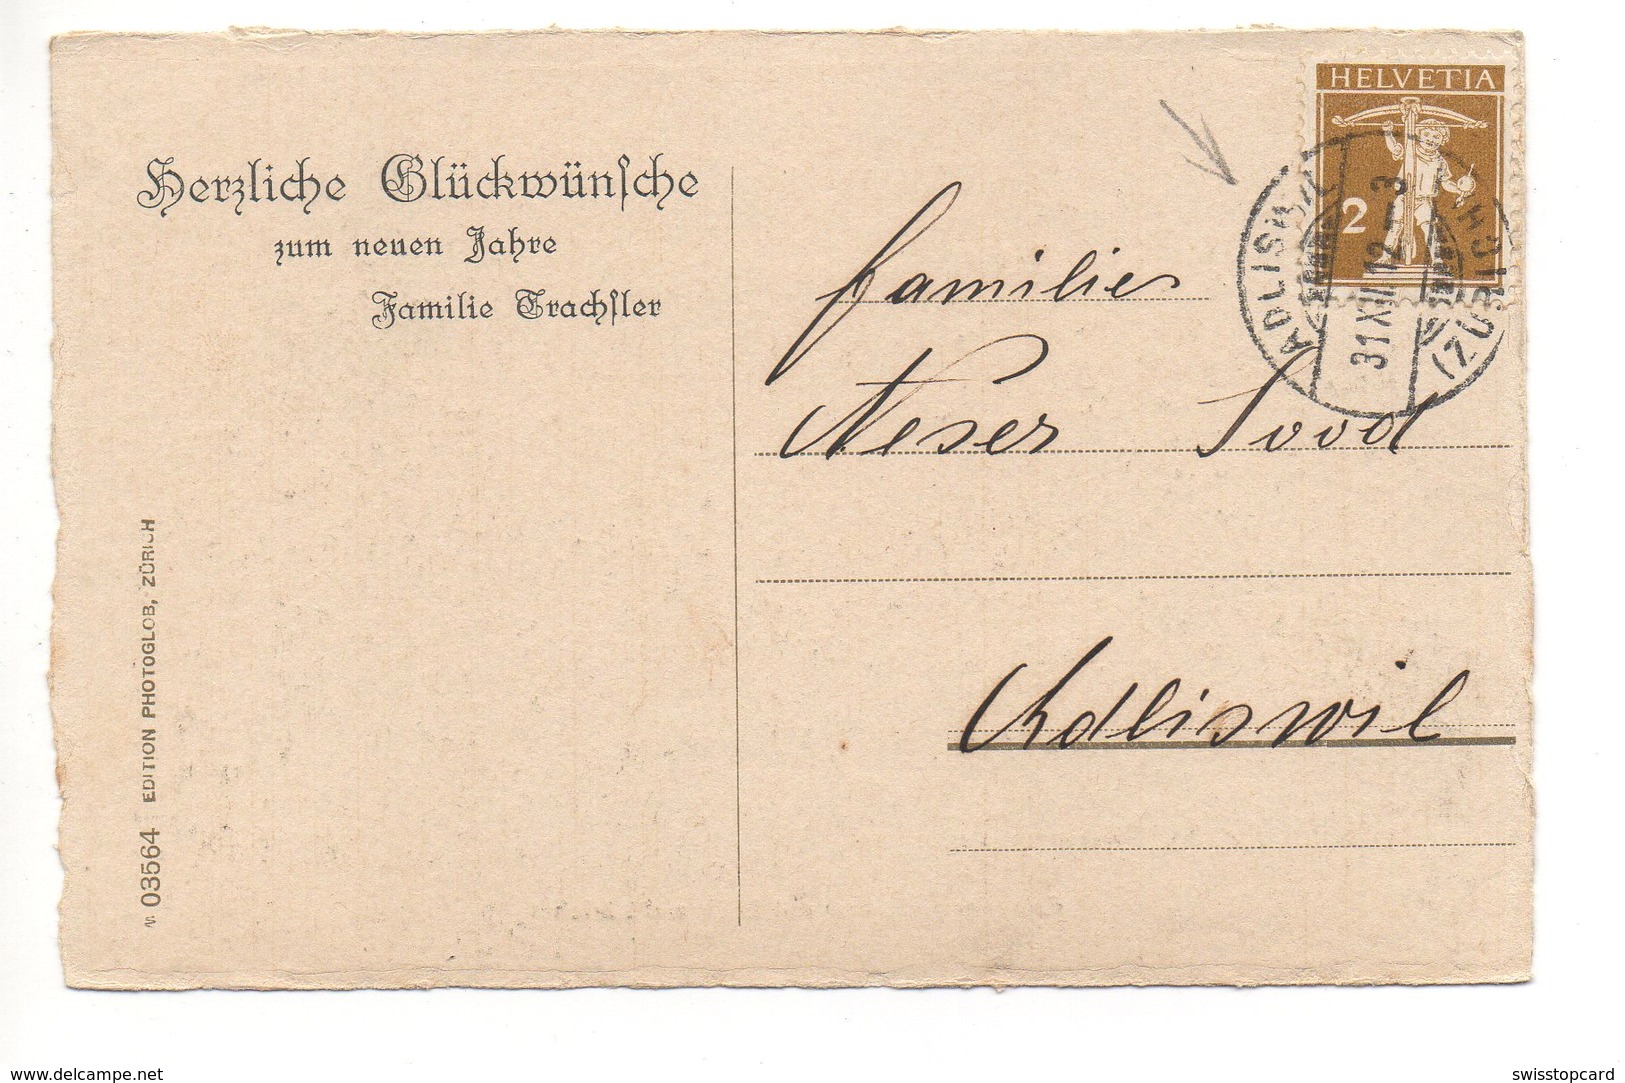 Herzliche Glückwünsche
zum neuen Jahre
Familie Trachsler
№ 03564 EDITION PHOTOGLOB, ZÜRICH
HELVETIA
2
ADLISWIL
31 XII 12-3
(ZÜRICH)
Familie
Neser
Adliswil
www.delcampe.net
swisstopcard